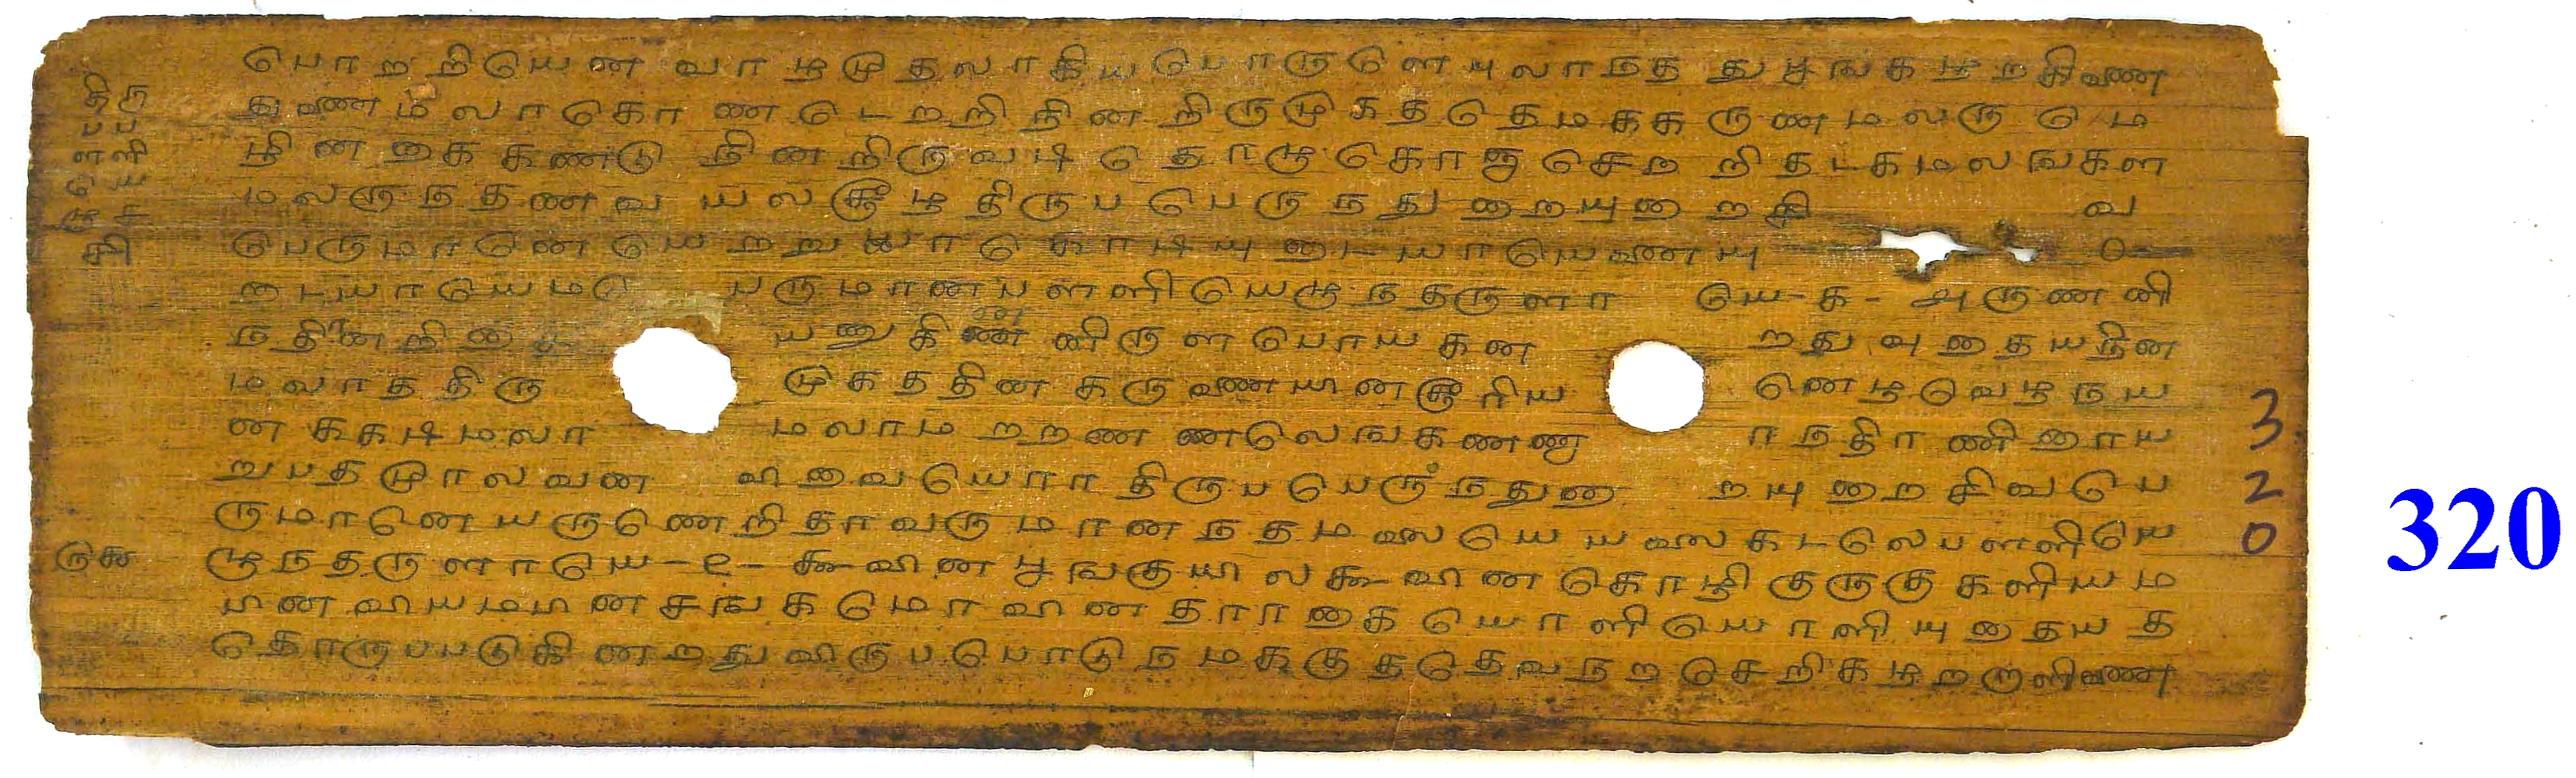 திரு
பப
ளளி
யெ
ழுச
சி
பொறறியென வாழமுதலாகியபொருளெ புலாநத துபூஙகழறகிணை
துணைமலாகொணடெறறிநினறிருமுகததெமககருணமலருமெ
ழினகைகணடு நினறிருவடிதொழுகொஞ செறறிதடகமலஙகள
மலருநதணவயலசூழதிருபபெருநதுறையுறைசி வ
பெருமானெயெறறுயாகொடியுடையாயெணையு
டையாயெம பருமானபளளியெழுநதருளா யெ-க-அருணனி
நதினறிசை யனுகினனிருளபொயகன றதுவுதையநின
மலாததிரு முகததினகருணையினசூரிய னெழவெழநய
னககடிமலா மலாமறறணணலெஙகணண ாநதிரணிரைய
றுபதமுரலவன விவையொரா திருபபெருநதுறை றயுறைசிவபெ
ருமானெயருணெறிதரவருமானநதமலையெயலைகடலெபளளியெ
ருக ழுநதருளாயெ-உ-கூவினபூஙகுயிலகூவினகொழிகுருகுகளியம
பினவியமபினசஙகமொவினதாரகையொளியொளியுதையத
தொருபபடுகினறதுவிருபபொடுநமககுததெவநறசெறிகழறறாளிணை
3
2
0
320